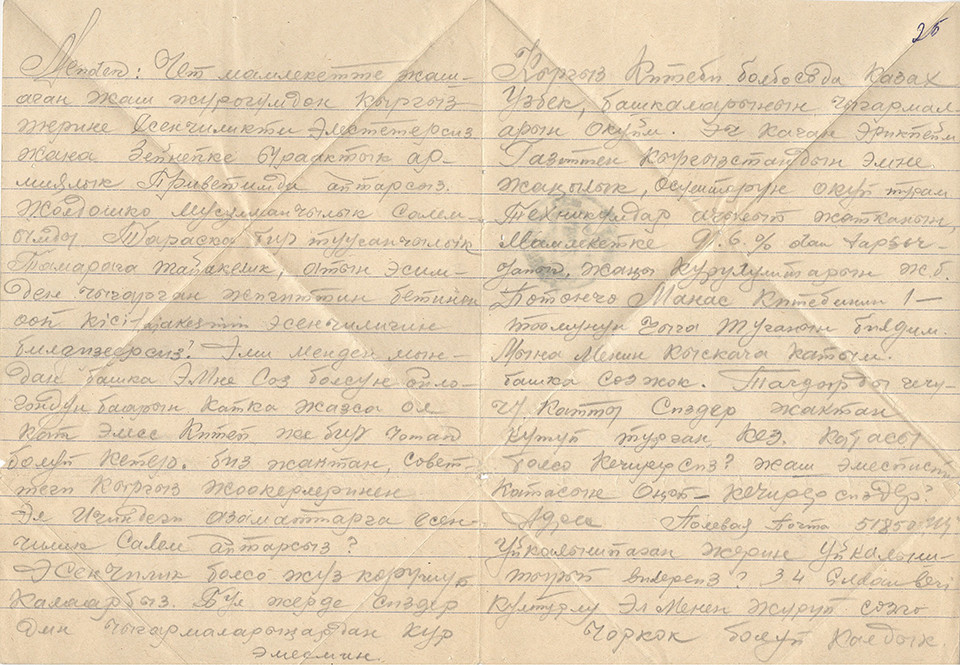 Menden: Чет мамлекетте жаш-
аган жаш журогумдон кыргыз
жерине Эсенчиликти элестетерсиз
жана Зейнепке ыраактык ар-
миялык Приветимди айтарсыз.
Жолдошко мусулманчылык Салем-
ымды Тараска бир туусанчылык
атын эсим-
ден чыгарган жигиттин бетинен
ооп кісі жакеsинин эсенчиличин
билдизерсиз? Эми менден мын-
дан башка эмне Соз болсун ойло-
гондун баарын катка жазса ол
кат эмес Китеп же бир
болуп кетер. биз жактан, совет-
теги кыргыз жоокерлеринен
Эл Ичиндеги азаматтарга есен-
чилик Салем айтарсыз?
Эсенчилик болсо жуз корушуп
калаарбыз. Бул жерде сиздер
дин чыгармаларыңардан кур
эмесмин.
26
Кыргыз Китеби болбосода Казах
Узбек, башкаларынын чыгармал-
арын окуйм. Эч качан Эрикпейм
Газиттен кыргызстандын эмне
жаңылык, осуштарун окуп турам
Техникумдар ачылып жатканын,
Мамлекетке 91.6.% dan
жаңы курулуштарын ж.б.
Потончо Манас Китебинин 1–
тоомунун чыга туганын билдим.
Мына Менин кыскача катым.
башка соз жок. Тагдырды чечу-
чу Катты Сиздер жактан
кутуп турган кез. Катасы
болсо кечирерсиз? жаш эмеспизби
Катасын Оңоп– кечирерсиздер?
Адрес Полевая Почта 51850
Уйкалышпаган жерине уйкалыш-
тырып виlерсиз? 34
културлу Эл Менен журуп созго
Чоркок болуп калдык.